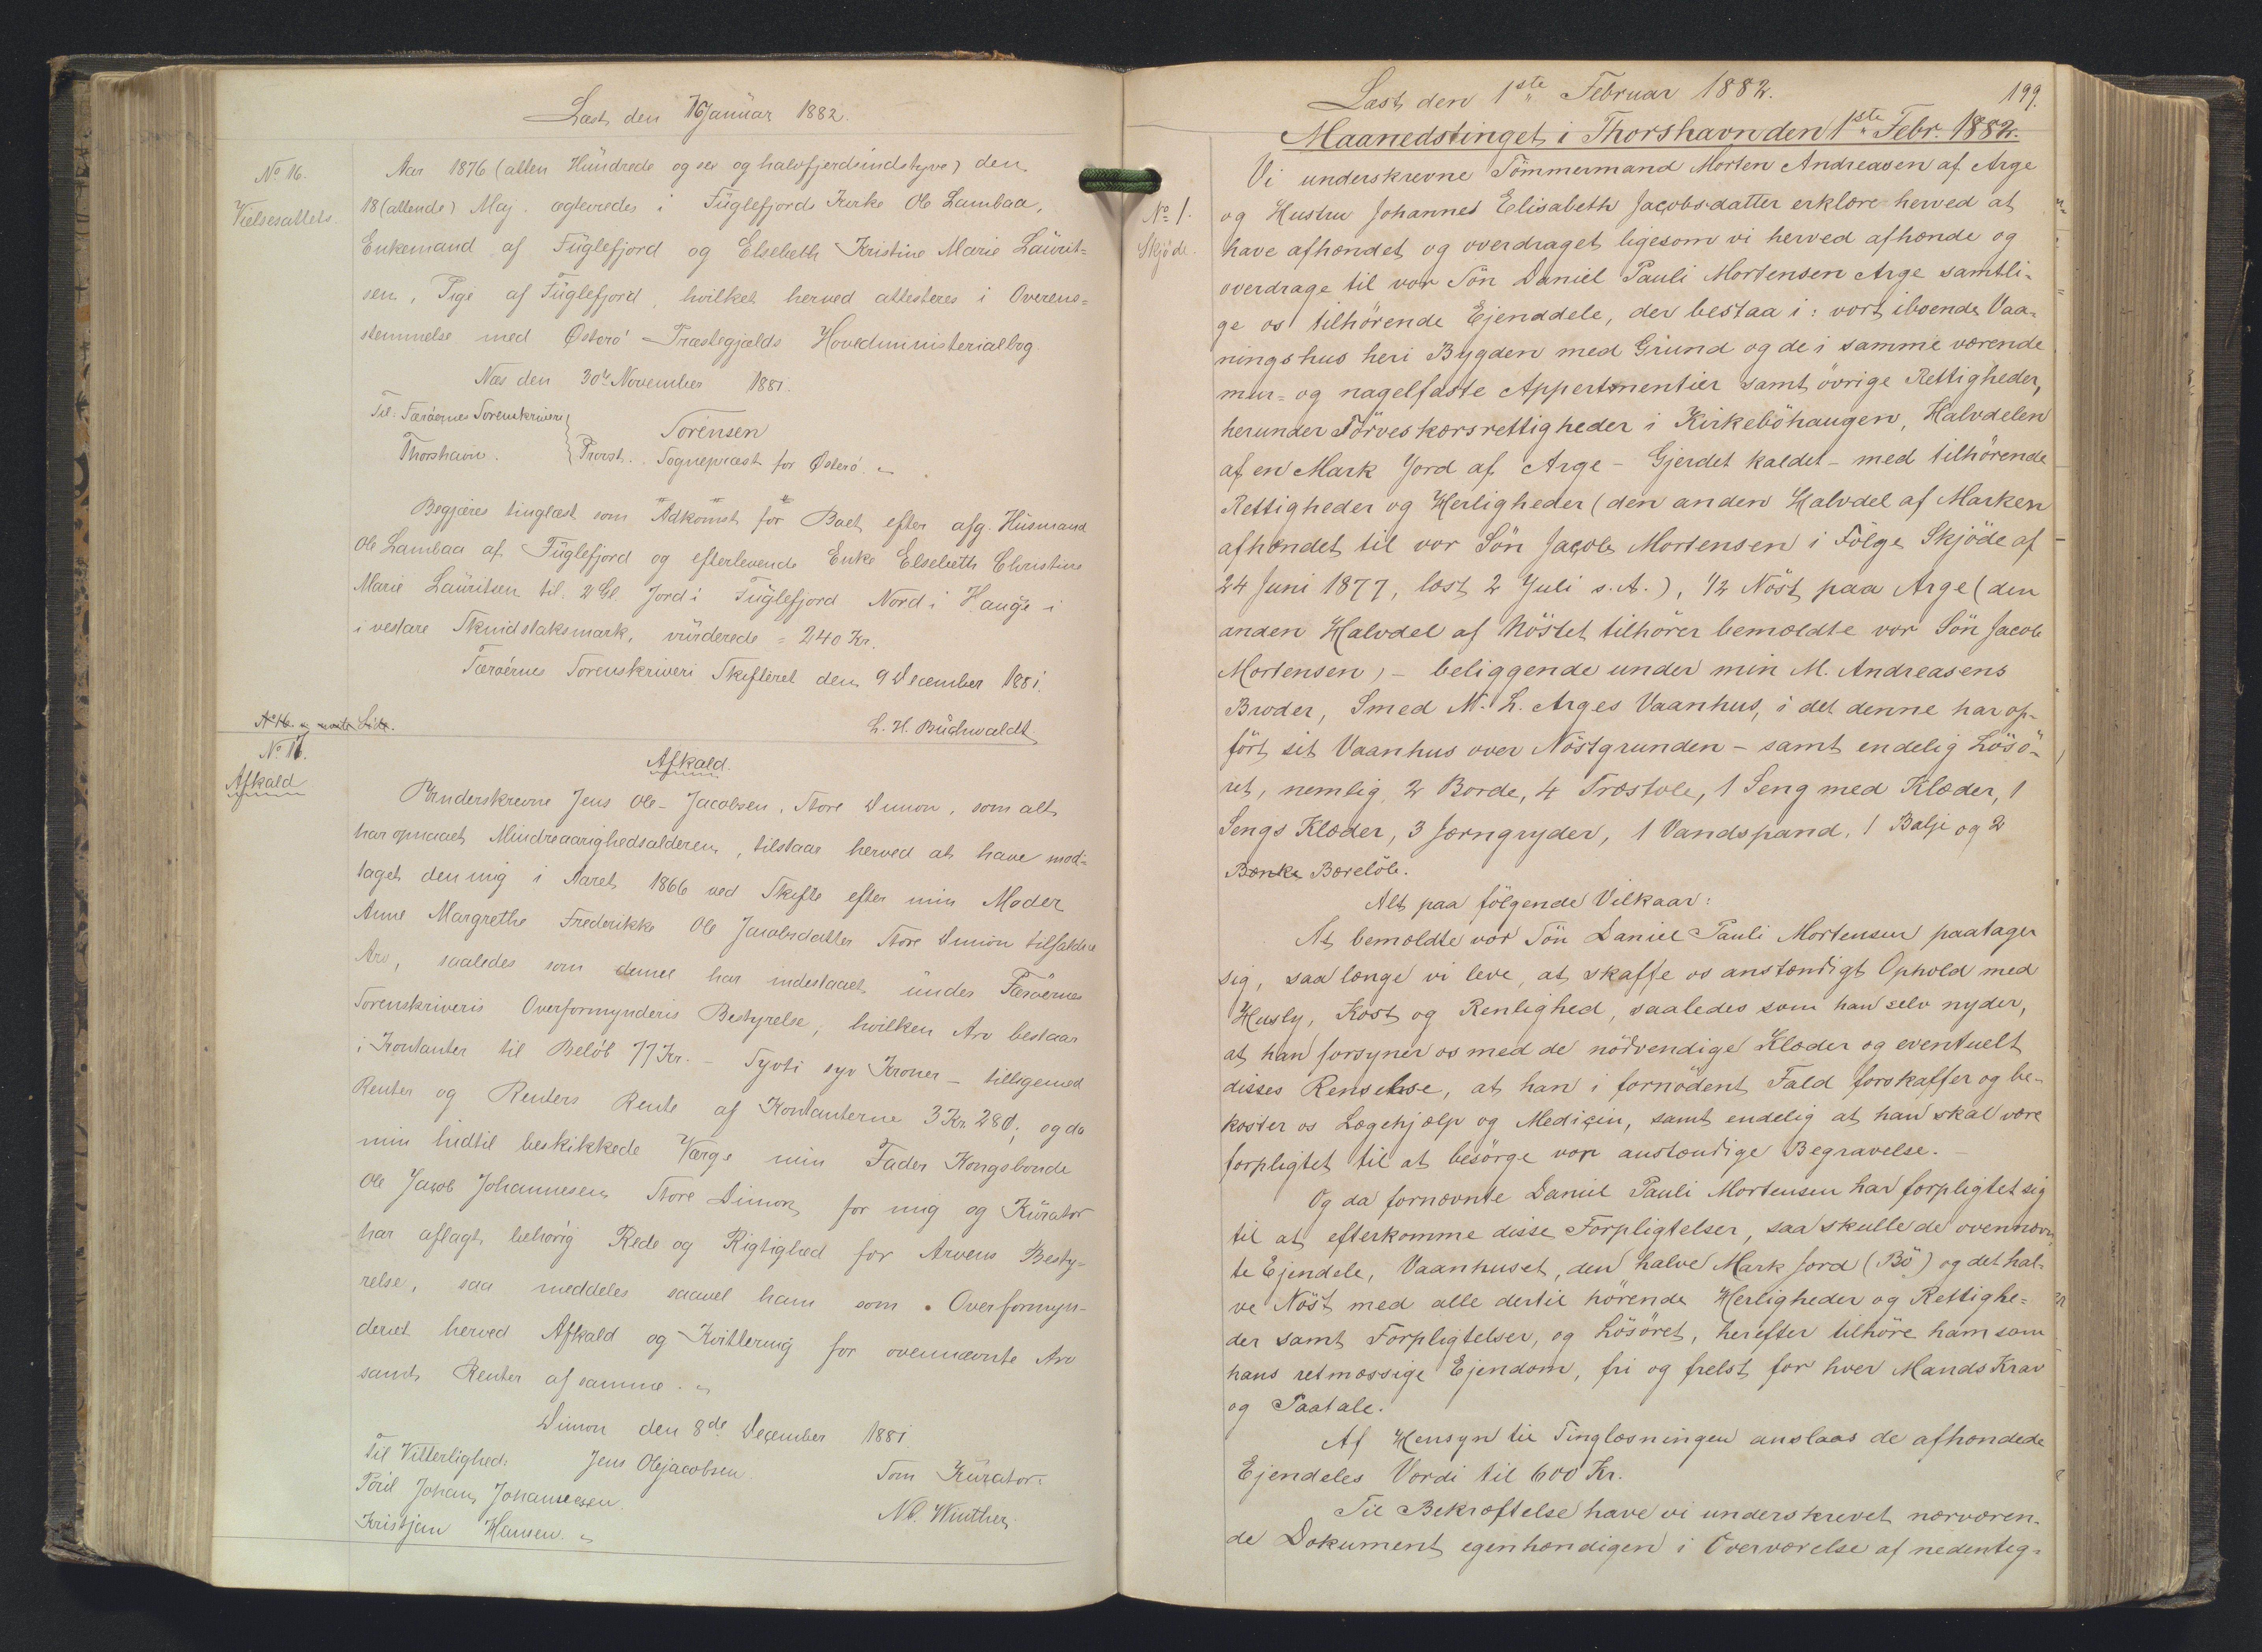 Læst den 16 Januar 1882.
No 16.
Vielsesattest.
Aar 1876 (atten Hundrede og sex og halvfjerdsindstyve) den
18 (attende) Maj. ægteviedes i Fuglefjords Kirke Ole Lambaa,
Enkemand af Fuglefjord og Elsebeth Kristine Marie Laurit=
sen, Pige af Fuglefjord, hvilket herved attesteres i Overens=
stemmelse med Østerö Præstegjælds Hovedministerialbog.
Næs den 30te November 1881.
Til Færöernes Sorenskriveri
Thorshavn.
Sörensen
Provst. Sognepræst for Østerö.
Begjæres tinglæst som Adkomst for Boet efter afg. Husmand
Ole Lambaa af Fuglefjord og efterlevende Enke Elsebeth Christine
Marie Lauritsen til 2 Gl. Jord i Fuglefjord Nord i Hauge i
i vestare Skuidstaksmark, vurderede = 240 Kr.
Færöernes Sorenskriveri Skifteret den 9 December 1881.
L. H. Buchwaldt
No 16.
No 17.
Afkald
Afkald.
Underskrevne Jens Ole-Jacobsen, Store Dimon, som alt
har opnaaet Mindreaarighedsalderen, tilstaar herved at have mod=
taget den mig i Aaret 1866 ved Skifte efter min Moder
Anne Margrethe Frederikke Ole Jacobsdatter Store Dimon tilfaldne
Arv, saaledes som denne har indestaaet under Færöernes
Sorenskriveris Overformynderis Bestyrelse, hvilken Arv bestaar
i Kontanter til Belöb 77 Kr. - Syvti syv Kroner - tilligemed
Renter og Renters Rente af Kontanterne 3 Kr 28 Ø; og da
min hidtil beskikkede Værge min Fader Kongsbonde
Ole Jacob Johannesen Store Dimon for mig og Kurator
har aflagt behörig Rede og Rigtighed for Arvens Besty=
relse, saa meddeles saavel ham som Overformyn-
deriet herved Afkald og Kvittering for ovennævnte Arv
samt Renter af samme.
Dimon den 8de December 1881.
Til Vitterlighed: Jens Olejacobsen. Som Kurator:
Poul Johan Johannesen. N. C. Winther.
Kristjan Hansen.
Læst den 1ste Februar 1882. 199.
Maanedstinget i Thorshavn den 1ste Febr. 1882.
No 1.
Skjöde.
Vi underskrevne Tömmermand Morten Andreasen af Arge
og Hustru Johannes Elisabeth Jacobsdatter erklære herved at
have afhændet og overdraget ligesom vi herved afhænde og
overdrage til vor Sön Daniel Pauli Mortensen Arge samtli=
ge os tilhörende Ejenddele, der bestaa i: vort iboende Vaa=
ningshus heri Bygden med Grund og de i samme værende
mur= og nagelfaste Appertmentier samt övrige Rettigheder,
herunder Törveskærsrettigheder i Kirkeböhaugen, Halvdelen
af en Mark Jord af Arge - Gjerdet kaldet - med tilhörende
Rettigheder og Herligheder (den anden Halvdel af Marken
afhændet til vor Sön Jacob Mortensen i Fölge Skjöde af
24 Juni 1877, læst 2 Juli s. A.), 1/2 Nöst paa Arge (den
anden Halvdel af Nöstet tilhörer bemældte vor Sön Jacob
Mortensen) - beliggende under min M. Andreasens
Broder, Smed M. L. Arges Vaanhus, i det denne har op-
fört sit Vaanhus over Nöstgrunden - samt endelig Lösö-
ret, nemlig 2 Borde, 4 Træstole, 1 Seng med Klæder, 1
Sengs Klæder, 3 Jærngryder, 1 Vandspand, 1 Balje og 2
Bænke Bæreløb.
Alt paa fölgende Vilkaar:
At bemældte vor Sön Daniel Pauli Mortensen paatager
sig, saa længe vi leve, at skaffe os anstændigt Ophold med
Husly, Kost og Renlighed, saaledes som han selv nyder,
at han forsyner os med de nödvendige Klæder og eventuelt
disses Renselse, at han i fornödent Fald forskaffer og be-
koster os Lægehjælp og Medicin, samt endelig at han skal være
forpligtet til at besörge vor anstændige Begravelse.
Og da fornævnte Daniel Pauli Mortensen har forpligtet sig
til at efterkomme disse Forpligtelser, saa skulle de ovennævn
te Ejendele, Vaanhuset, den halve Mark Jord (Bö) og det hal-
ve Nöst med alle dertil hörende Herligheder og Rettighe=
der samt Forpligtelser, og Lösöret, herefter tilhöre ham som
hans retmæssige Ejendom, fri og frelst for hver Mands Krav
og Paatale.
Af Hensyn til Tinglæsningen anslaas de afhændede
Ejendeles Værdi til 600 Kr.
Til Bekræftelse have vi underskrevet nærværen-
de Dokument egenhændigen i Overværelse af nedenteg=